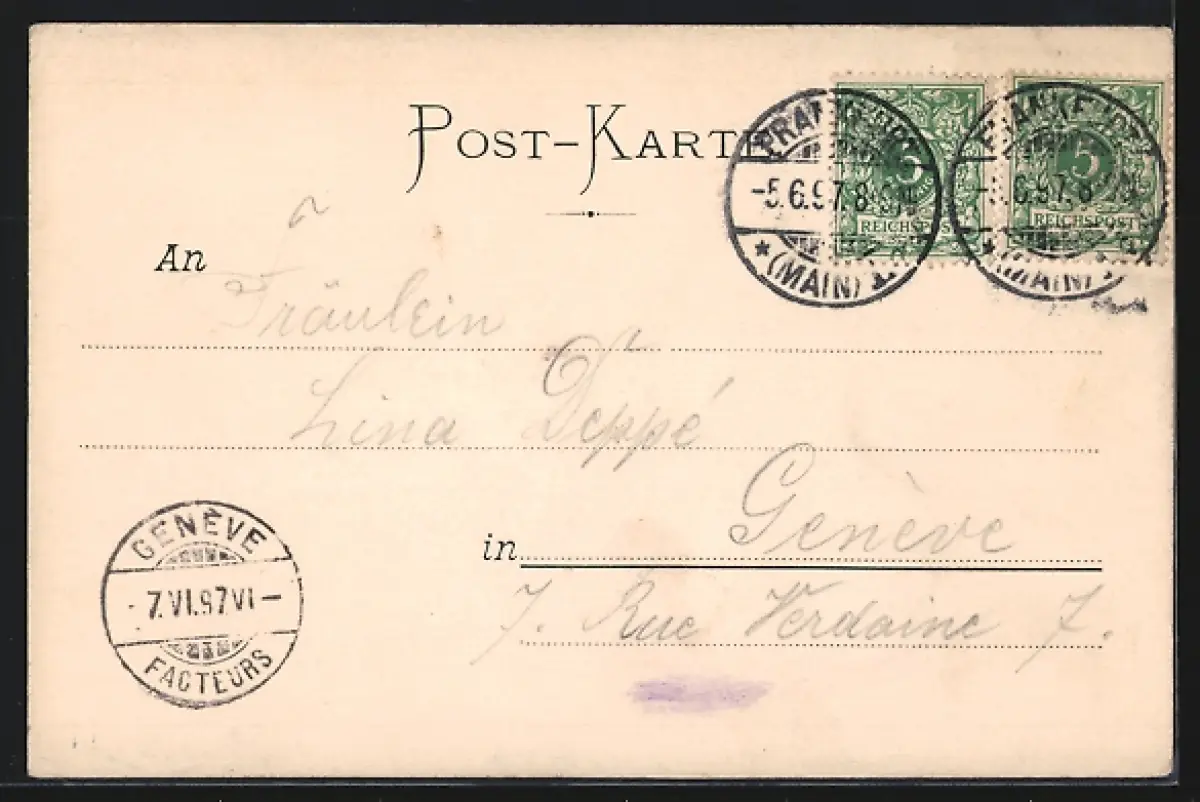 POST-KARTE
FRANKFURT
-5.6.97.8-9N
* (MAIN) 1.
5
REICHSPOST
FRANKFURT
6.97.8
* (MAIN)
5
REICHSPOST
An Fräulein
Lina Deppé
in Genève
7. Rue Verdaine 7.
GENÈVE
7.VI.97 VI-
FACTEURS